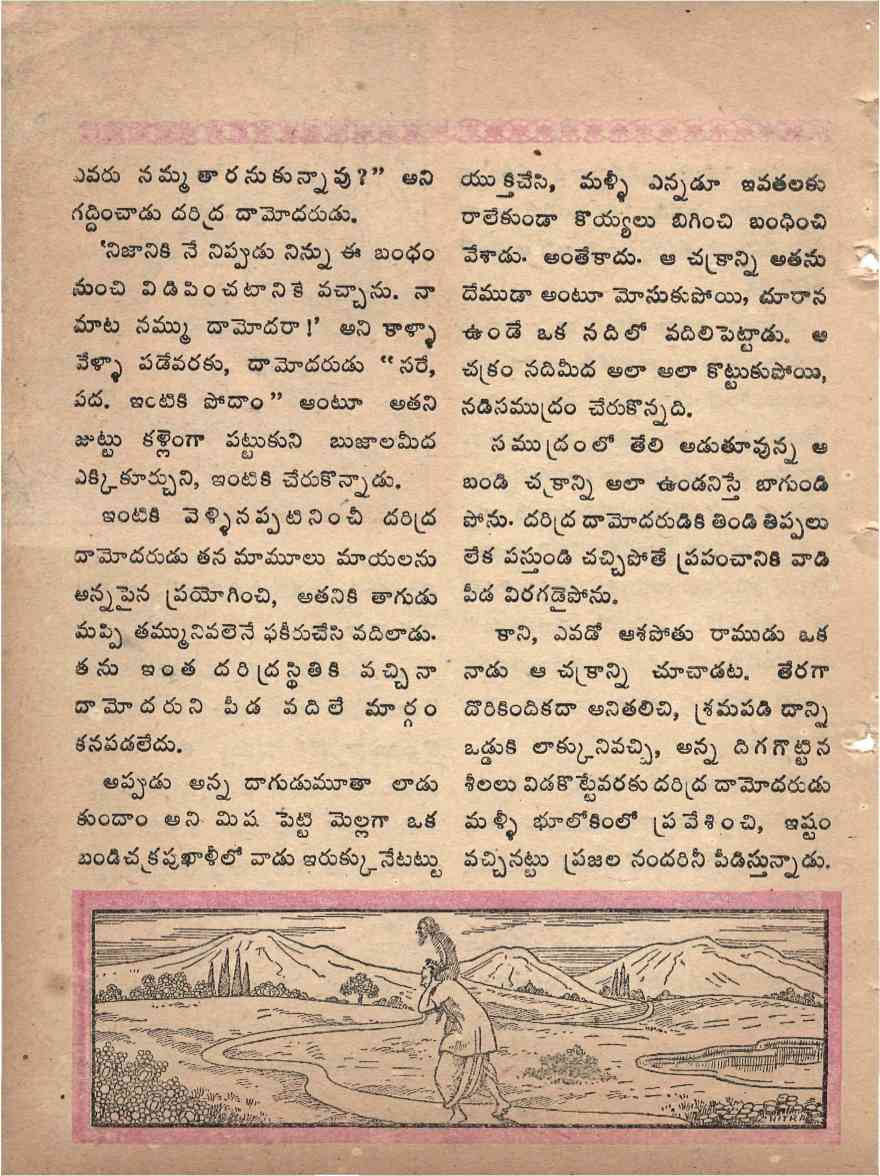 ఎవరు నమ్మతారనుకున్నావు?” అని
గద్దించాడు దరిద్ర దామోదరుడు.
‘నిజానికి నే నిప్పుడు నిన్ను ఈ బంధం
నుంచి విడిపించటానికే వచ్చాను. నా
మాట నమ్ము దామోదరా!’ అని కాళ్ళా
వేళ్ళా పడేవరకు, దామోదరుడు “సరే,
పద. ఇంటికి పోదాం” అంటూ అతని
జుట్టు కళ్లెంగా పట్టుకుని బుజాలమీద
ఎక్కికూర్చుని, ఇంటికి చేరుకొన్నాడు.
ఇంటికి వెళ్ళినప్పటినించీ దరిద్ర
దామోదరుడు తన మామూలు మాయలను
అన్నపైన ప్రయోగించి, అతనికి తాగుడు
మప్పి తమ్మునివలెనే ఫకీరుచేసి వదిలాడు.
తను ఇంత దరిద్రస్థితికి వచ్చినా
దామోదరుని పీడ వదిలే మార్గం
కనపడలేదు.
అప్పుడు అన్న దాగుడుమూతా లాడు
కుందాం అని మిష పెట్టి మెల్లగా ఒక
బండిచక్రపుఖాళీలో వాడు ఇరుక్కునేటట్టు
యుక్తిచేసి, మళ్ళీ ఎన్నడూ ఇవతలకు
రాలేకుండా కొయ్యలు బిగించి బంధించి
వేశాడు. అంతేకాదు. ఆ చక్రాన్ని అతను
దేముడా అంటూ మోసుకుపోయి, దూరాన
ఉండే ఒక నదిలో వదిలిపెట్టాడు. ఆ
చక్రం నదిమీద అలా అలా కొట్టుకుపోయి,
నడిసముద్రం చేరుకొన్నది.
సముద్రంలో తేలి ఆడుతూవున్న ఆ
బండి చక్రాన్ని అలా ఉండనిస్తే బాగుండి
పోను. దరిద్ర దామోదరుడికి తిండి తిప్పలు
లేక పస్తుండి చచ్చిపోతే ప్రపంచానికి వాడి
పీడ విరగడైపోను.
కాని, ఎవడో ఆశపోతు రాముడు ఒక
నాడు ఆ చక్రాన్ని చూచాడట. తేరగా
దొరికిందికదా అనితలిచి, శ్రమపడి దాన్ని
ఒడ్డుకి లాక్కునివచ్చి, అన్న దిగగొట్టిన
శీలలు విడకొట్టేవరకు దరిద్ర దామోదరుడు
మళ్ళీ భూలోకింలో ప్రవేశించి, ఇష్టం
వచ్చినట్టు ప్రజల నందరినీ పీడిస్తున్నాడు.
CHITRA